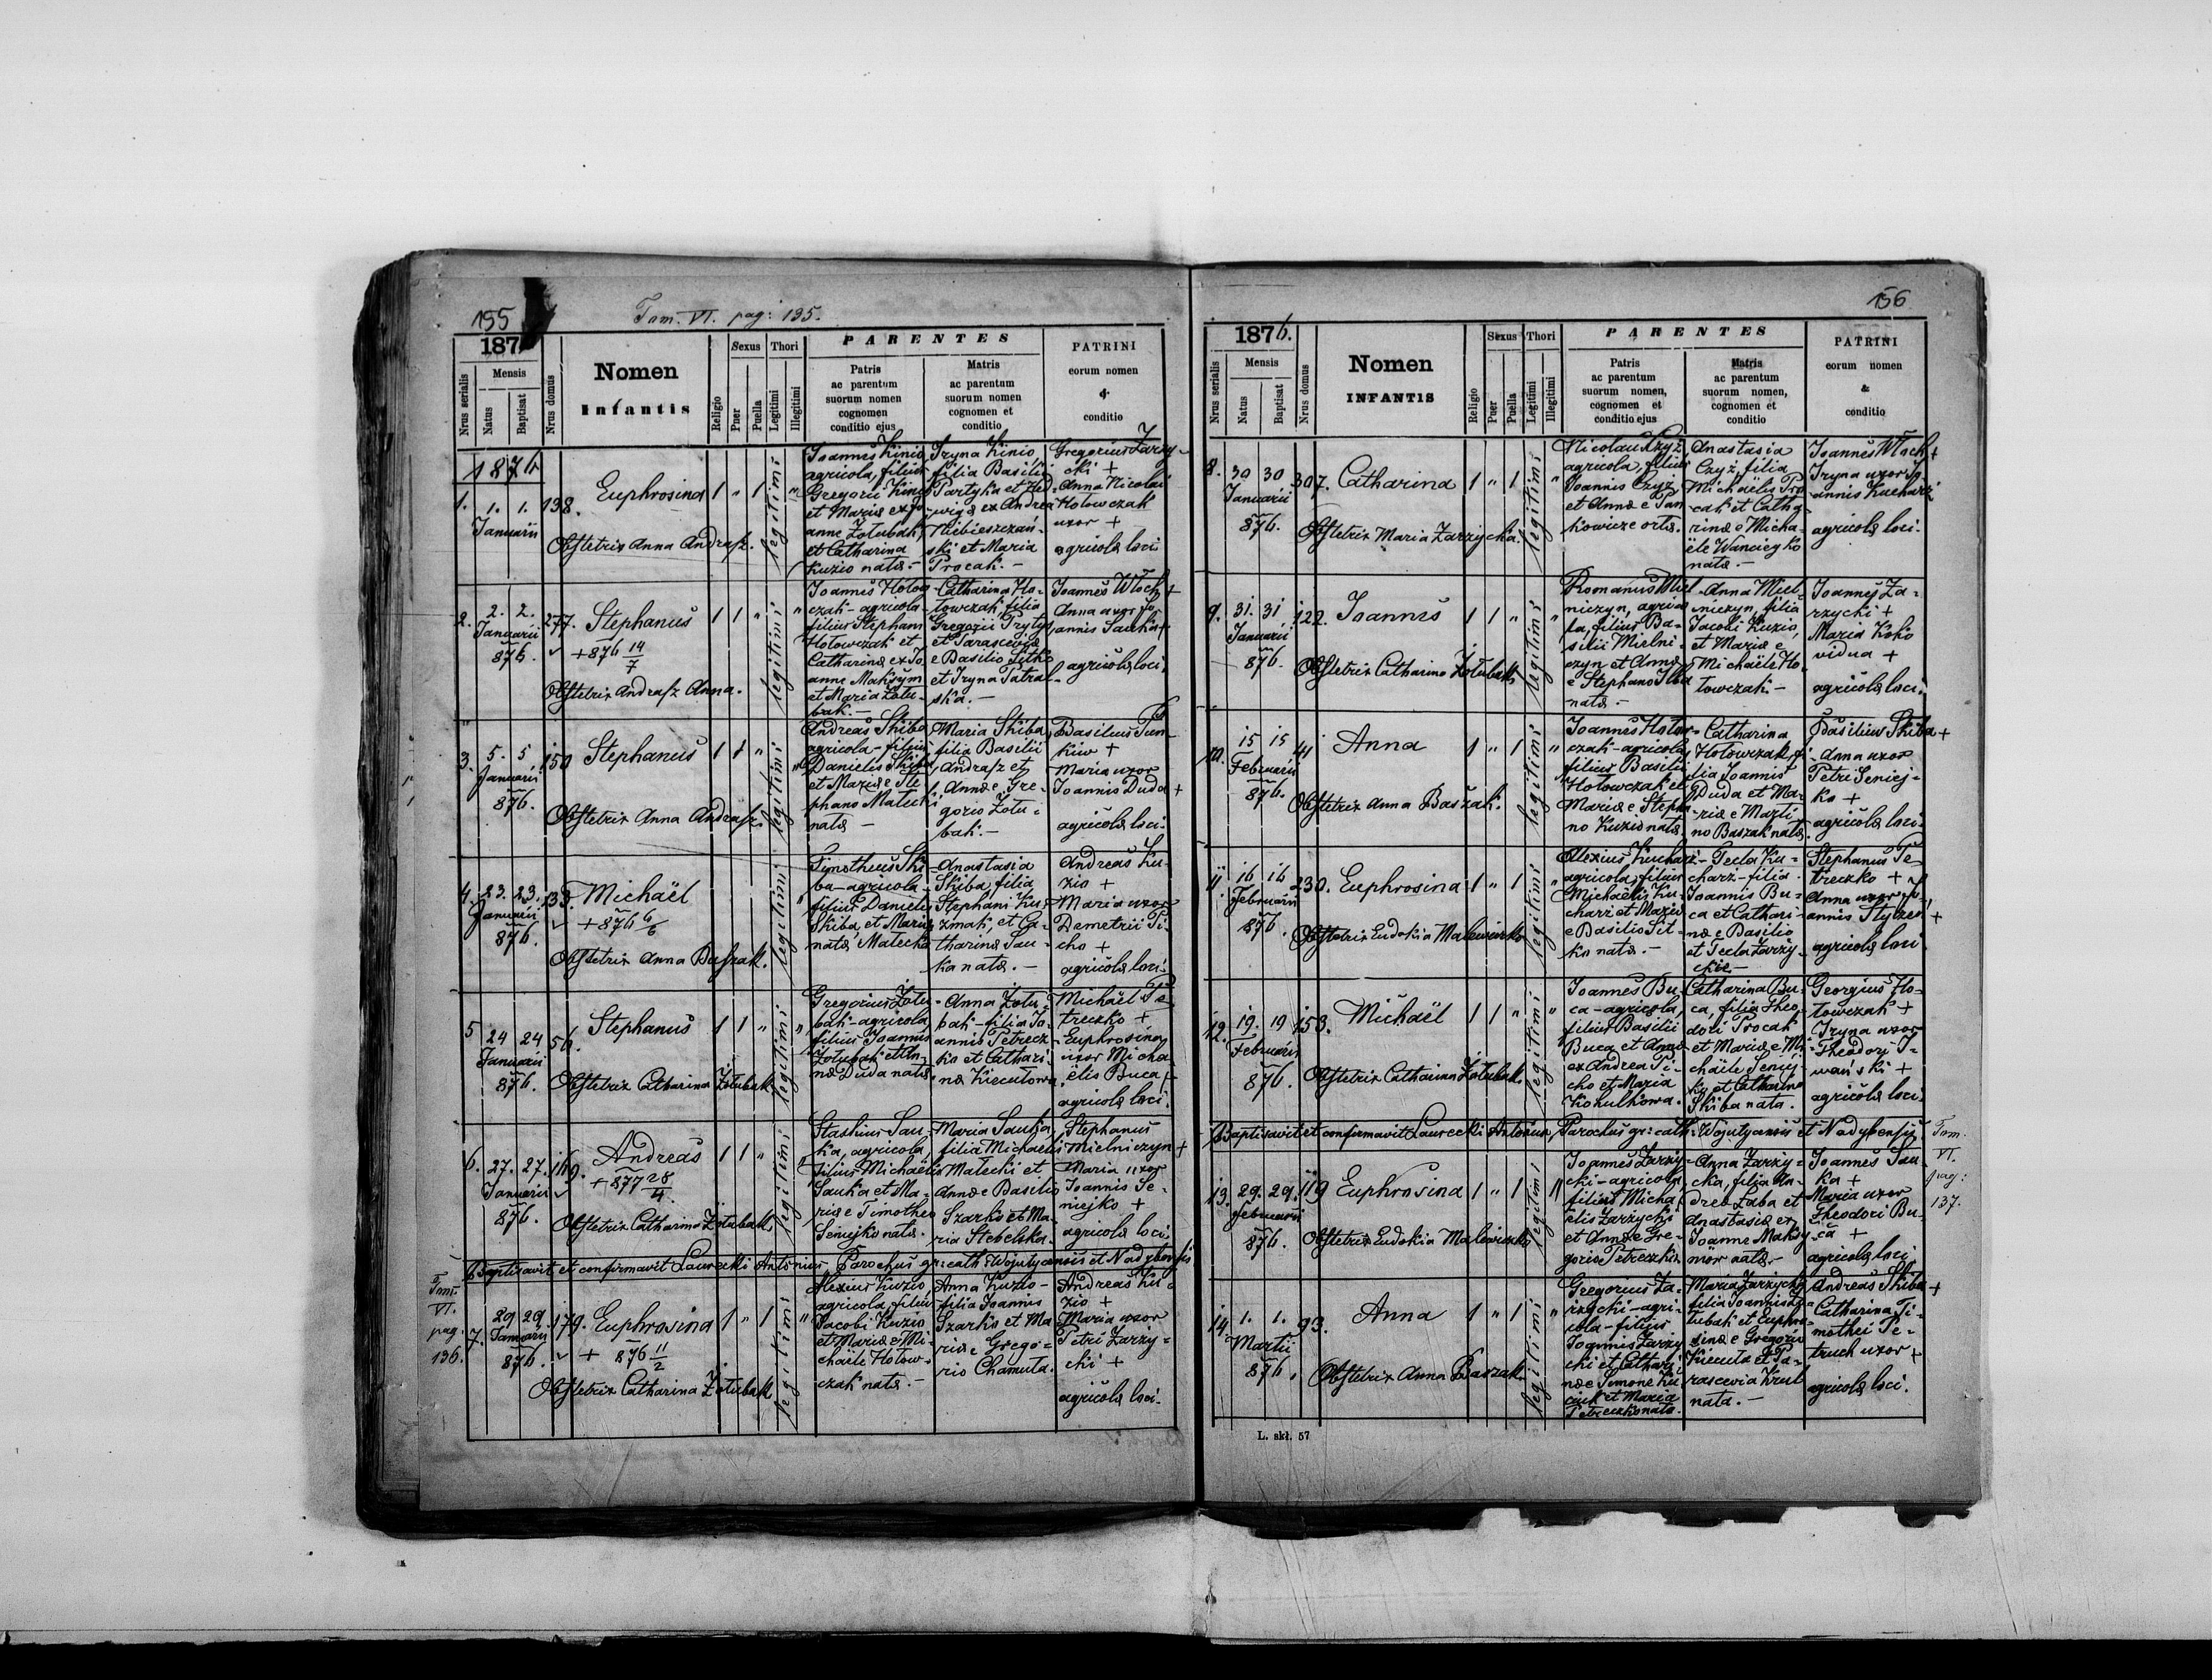 155
Tom. VI. pag: 135.
187
Nrus serialis
Mensis
Natus
Baptisat
Nrus domus
Nomen
Infantis
Religio
Sexus
Puer
Puella
Thori
Legitimi
Illegitimi
PARENTES
Patris
ac parentum
suorum nomen
cognomen
conditio ejus
Matris
ac parentum
suorum nomen
cognomen et
conditio
PATRINI
eorum nomen
&
conditio
1876
1. 1. 1. 138. Euphrosina 1 " 1 "
Januarii
Obstetrix Anna Andrasz.
legitimi
Joannes Kinio,
agricola, filius
Gregorii Kinio
et Mariæ ex Jo-
anne Zołubak,
et Catharina
Kuzio natæ.-
Iryna Kinio,
filia Basilii
Partyka et Hed-
wigæ ex Andrea
Niebieszczań-
ski et Maria
Procak.-
Gregorius Zarzy-
cki +
Anna Nicolai
Hołowczak
uxor +
agricolæ loci
2. 2. 2. 277. Stephanus 1 1 " "
Januarii
876.
+ 876 14/7
Obstetrix Andrasz Anna.
legitimi
Joannes Hołow-
czak - agricola
filius Stephani
Hołowczak et
Catharinæ ex Jo-
anne Maksym
et Maria Zołu-
bak.-
Catharina Ho-
łowczak, filia
Gregorii Trytyn
et Parascevia
e Basilio Sitko
et Iryna Tatral-
ska.-
Joannes Włoch +
Anna uxor Jo-
annis Sauka +
agricolæ loci.
3. 5. 5. 150 Stephanus 1 1 " "
Januarii
876.
Obstetrix Anna Andrasz.
legitimi
Andreas Skiba
agricola - filius
Danielis Skiba,
et Mariæ e Ste-
phano Małecki
natæ -
Maria Skiba,
filia Basilii
Andrasz et
Annæ e Gre-
gorio Zołu-
bak.-
Basilius Tum-
kiw +
Maria uxor
Joannis Duda +
agricolæ loci.
4. 23. 23. 133. Michaël
Januarii
876.
+ 876 6/6
Obstetrix Anna Baszak.
legitimi
Timotheus Ski-
ba - agricola -
filius Danielis
Skiba, et Mariæ
natæ Małecka
Anastasia
Skiba, filia
Stephani Ku-
zmak, et Ca-
tharinæ Sau-
ka natæ.-
Andreas Ku-
zio +
Maria uxor
Demetrii Ti-
cho +
agricolæ loci.
5 24 24 56. Stephanus 1 1 " "
Januarii
876.
Obstetrix Catharina Zołubak
legitimi
Gregorius Zołu-
bak - agricola,
filius Joannis
Zołubak et An-
næ Duda natæ
Anna Zołu-
bak - filia Jo-
annis Petrecz-
ko et Cathari-
næ Kiecułowa.
Michaël Pe-
treczko +
Euphrosina
uxor Micha-
ëlis Buca +
agricolæ loci.
6. 27. 27. 169. Andreas 1 1 " "
Januarii
876.
+ 877 28/4.
Obstetrix Catharina Zołubak.
legitimi
Staskius Sau-
ka, agricola,
filius Michaëlis
Sauka et Ma-
riæ e Timotheo
Seniejko natæ.
Maria Sauka,
filia Michaëlis
Małecki et
Annæ e Basilio
Szarko et Ma-
ria Stebelska.
Stephanus
Mielniczyn +
Maria uxor
Joannis Se-
niejko +
agricolæ loci.
Baptisavit et confirmavit Laurecki Antonius Parochus gr: cath: Wojutycensis et Nadybensis
Tom.
VI.
pag.
136.
7. 29 29 179. Euphrosina 1 " 1 "
Januarii
876.
+ 876 11/2
Obstetrix Catharina Zołubak
legitimi
Alexius Kuzio
agricola, filius
Jacobi Kuzio
et Mariæ e Mi-
chaële Hołow-
czak natæ.-
Anna Kuzio -
filia Joannis
Szarko et Ma-
riæ e Grego-
rio Chamuła.
Andreas Ku-
zio +
Maria uxor
Petri Zarzy-
cki +
agricolæ loci.
156
1876.
Nrus serialis
Mensis
Natus
Baptisat
Nrus domus
Nomen
INFANTIS
Religio
Sexus
Puer
Puella
Thori
Legitimi
Illegitimi
PARENTES
Patris
ac parentum
suorum nomen,
cognomen et
conditio ejus
Matris
ac parentum
suorum nomen,
cognomen et
conditio
PATRINI
eorum nomen
&
conditio
8. 30 30 307. Catharina 1 " 1 "
Januarii
876.
Obstetrix Maria Zarzycka.
legitimi
Nicolaus Czyż
agricola, filius
Joannis Czyż
et Annæ e Pan-
kowicze ortæ.
Anastasia
Czyż, filia
Michaëlis Pro-
cak et Catha-
rinæ e Micha-
ële Wanciegko
natæ.-
Joannes Włoch +
Iryna uxor Jo-
annis Kucharz
agricolæ loci.
9. 31. 31 122. Joannes 1 1 " "
Januarii
876.
Obstetrix Catharina Zołubak.
legitimi
Romanus Miel-
niczyn, agrico-
la, filius Ba-
silii Mielni-
czyn et Annæ
e Stephano
natæ.-
Anna Miel-
niczyn, filia
Jacobi Kuzio,
et Mariæ e
Michaële Ho-
łowczak.-
Joannes Za-
rzycki +
Maria Koko
vidua +
agricolæ loci.
10. 15 15 41 Anna 1 " 1 "
Februarii
876.
Obstetrix Anna Baszak.
legitimi
Joannes Hołow-
czak - agricola,
filius Basilii
Hołowczak et
Mariæ e Stepha-
no Kuzio natæ.
Catharina
Hołowczak, fi-
lia Joannis
Duda et Ma-
riæ e Marti-
no Baszak natæ.
Basilius Skiba +
Anna uxor
Petri Seniej-
ko +
agricolæ loci.
11. 16 16 230. Euphrosina 1 " 1 "
Februarii
876.
Obstetrix Eudokia Malewiczko
legitimi
Alexius Kucharz
agricola, filius
Michaëlis Ku-
charz et Mariæ
e Basilio Sit-
ko natæ.-
Tecla Ku-
charz - filia
Joannis Bu-
ca et Cathari-
næ e Basilio
et Tecla Zarzy-
ckie.-
Stephanus Pe-
treczko +
Anna uxor Jo-
annis Styzen +
agricolæ loci
12. 19. 19 153. Michaël 1 1 " "
Februarii
876.
Obstetrix Catharina Zołubak.
legitimi
Joannes Bu-
ca - agricola,
filius Basilii
Buca et Annæ
ex Andrea Ti-
cho et Maria
Kokulkowa.
Catharina Bu-
ca, filia Theo-
dori Procak
et Mariæ e Mi-
chaële Seniej-
ko et Catharina
Skiba nata.
Georgius Ho-
łowczak +
Iryna uxor
Theodori I-
wański +
agricolæ loci.
Baptisavit et confirmavit Laurecki Antonius, Parochus gr: cath: Wojutycensis et Nadybensis
Tom.
VI.
pag:
137.
13. 29. 29. 119 Euphrosina 1 " 1 "
Februarii
876.
Obstetrix Eudokia Malewiczko
legitimi
Joannes Zarzy-
cki - agricola,
filius Micha-
ëlis Zarzycki
et Annæ e Gre-
gorio Petreczko.
Anna Zarzy-
cka, filia An-
dreæ Łaba et
Anastasiæ ex
Joanne Maksy-
mów natæ.-
Joannes Sau-
ka +
Maria uxor
Theodori Bu-
ca +
agricolæ loci
14. 1. 1. 93. Anna 1 " 1 "
Martii
876.
Obstetrix Anna Baszak.
legitimi
Gregorius Za-
rzycki - agri-
cola - filius
Joannis Zarzy-
cki et Cathari-
næ e Simone
et Maria
Petreczko natæ.
Maria Zarzycka
filia Joannis Zo-
łubak et Euphro-
sinæ e Gregorio
Kiecuła et Pa-
rascevia Krul
nata.-
Andreas Skiba +
Catharina Ti-
mothei Pe-
truch uxor +
agricolæ loci.
L. skł. 57